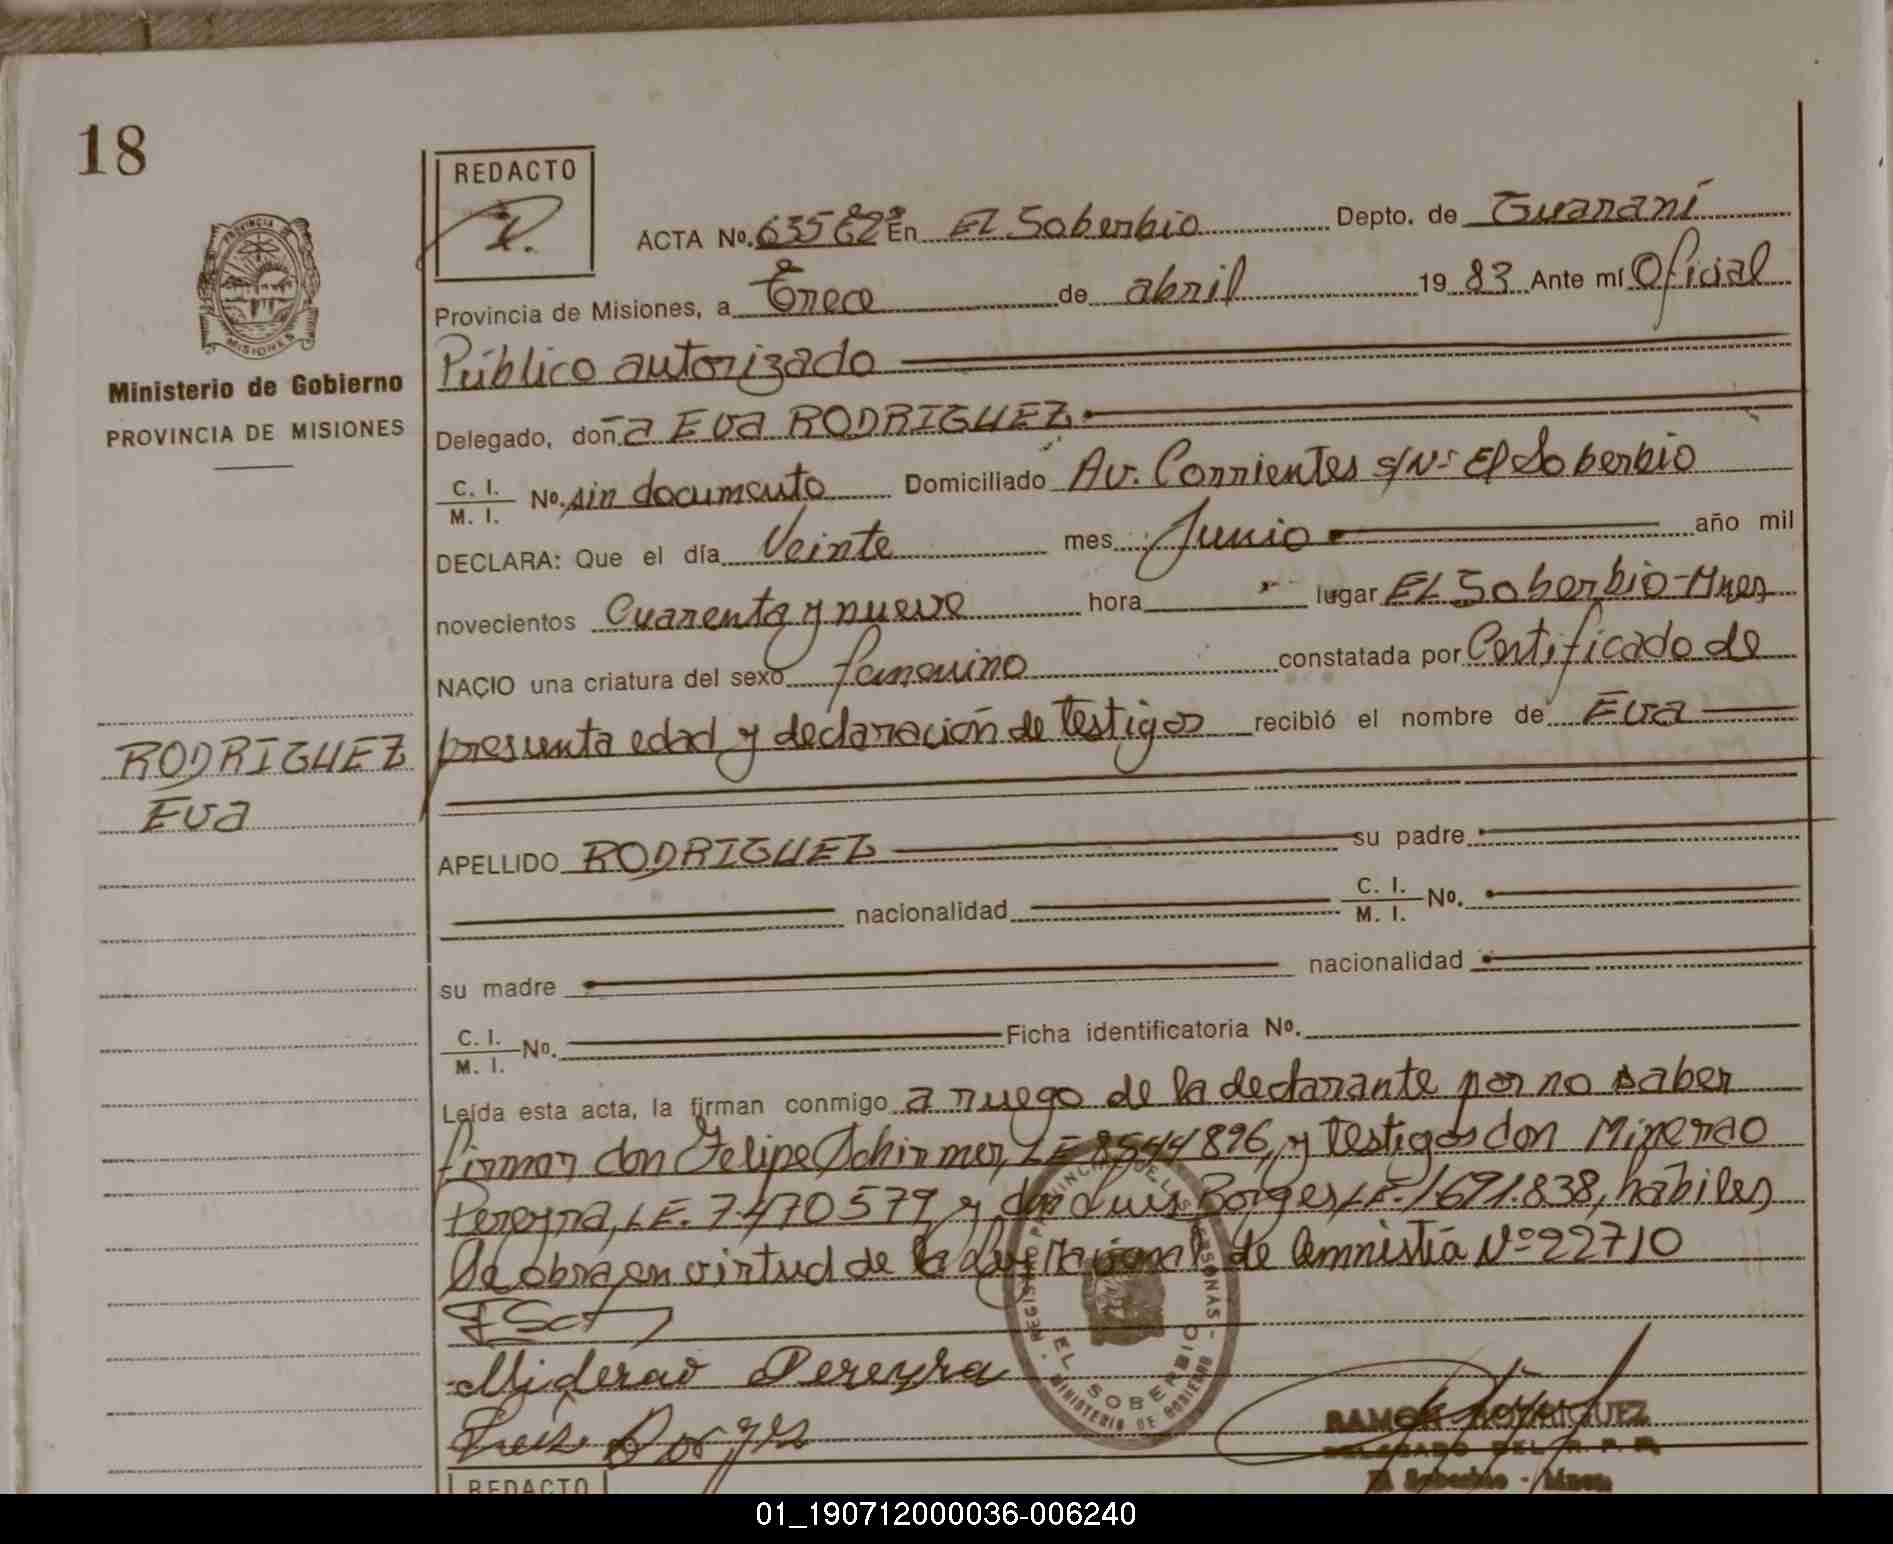 18
REDACTO
PROVINCIA DE
MISIONES
Ministerio de Gobierno
PROVINCIA DE MISIONES
ACTA No. 635 En El Soberbio Depto. de Guaraní
Provincia de Misiones, a Trece de abril 1983 Ante mí Oficial
Público autorizado
Delegado, doña Eva RODRIGUEZ
C. I.
M. I. No. sin documento Domiciliado Av. Corrientes s/Nº El Soberbio
DECLARA: Que el día Veinte mes Junio año mil
novecientos Cuarenta y nueve hora lugar EL Soberbio-Mnes
NACIO una criatura del sexo femenino constatada por Certificado de
presunta edad y declaración de testigos recibió el nombre de Eva
RODRIGUEZ
Eva
APELLIDO RODRIGUEZ su padre
nacionalidad C. I.
M. I. No.
su madre nacionalidad
C. I.
M. I. No. Ficha identificatoria No.
Leída esta acta, la firman conmigo a ruego de la declarante por no saber
firmar don Felipe Schirmer, LE 8544896, y testigos don Miderao
Pereyra, LE. 7.470579 y don Luis Borges LE. 1.691.838, habiles
Se obra en virtud de la Ley Nacional de Amnistía Nº 22710
Miderao Pereyra
Luis Borges
REGISTRO PROVINCIAL DE LAS PERSONAS
EL SOBERBIO
MINISTERIO DE GOBIERNO
RAMON RODRIGUEZ
DELEGADO DEL R. P. P.
El Soberbio - Mnes
REDACTO
01_190712000036-006240